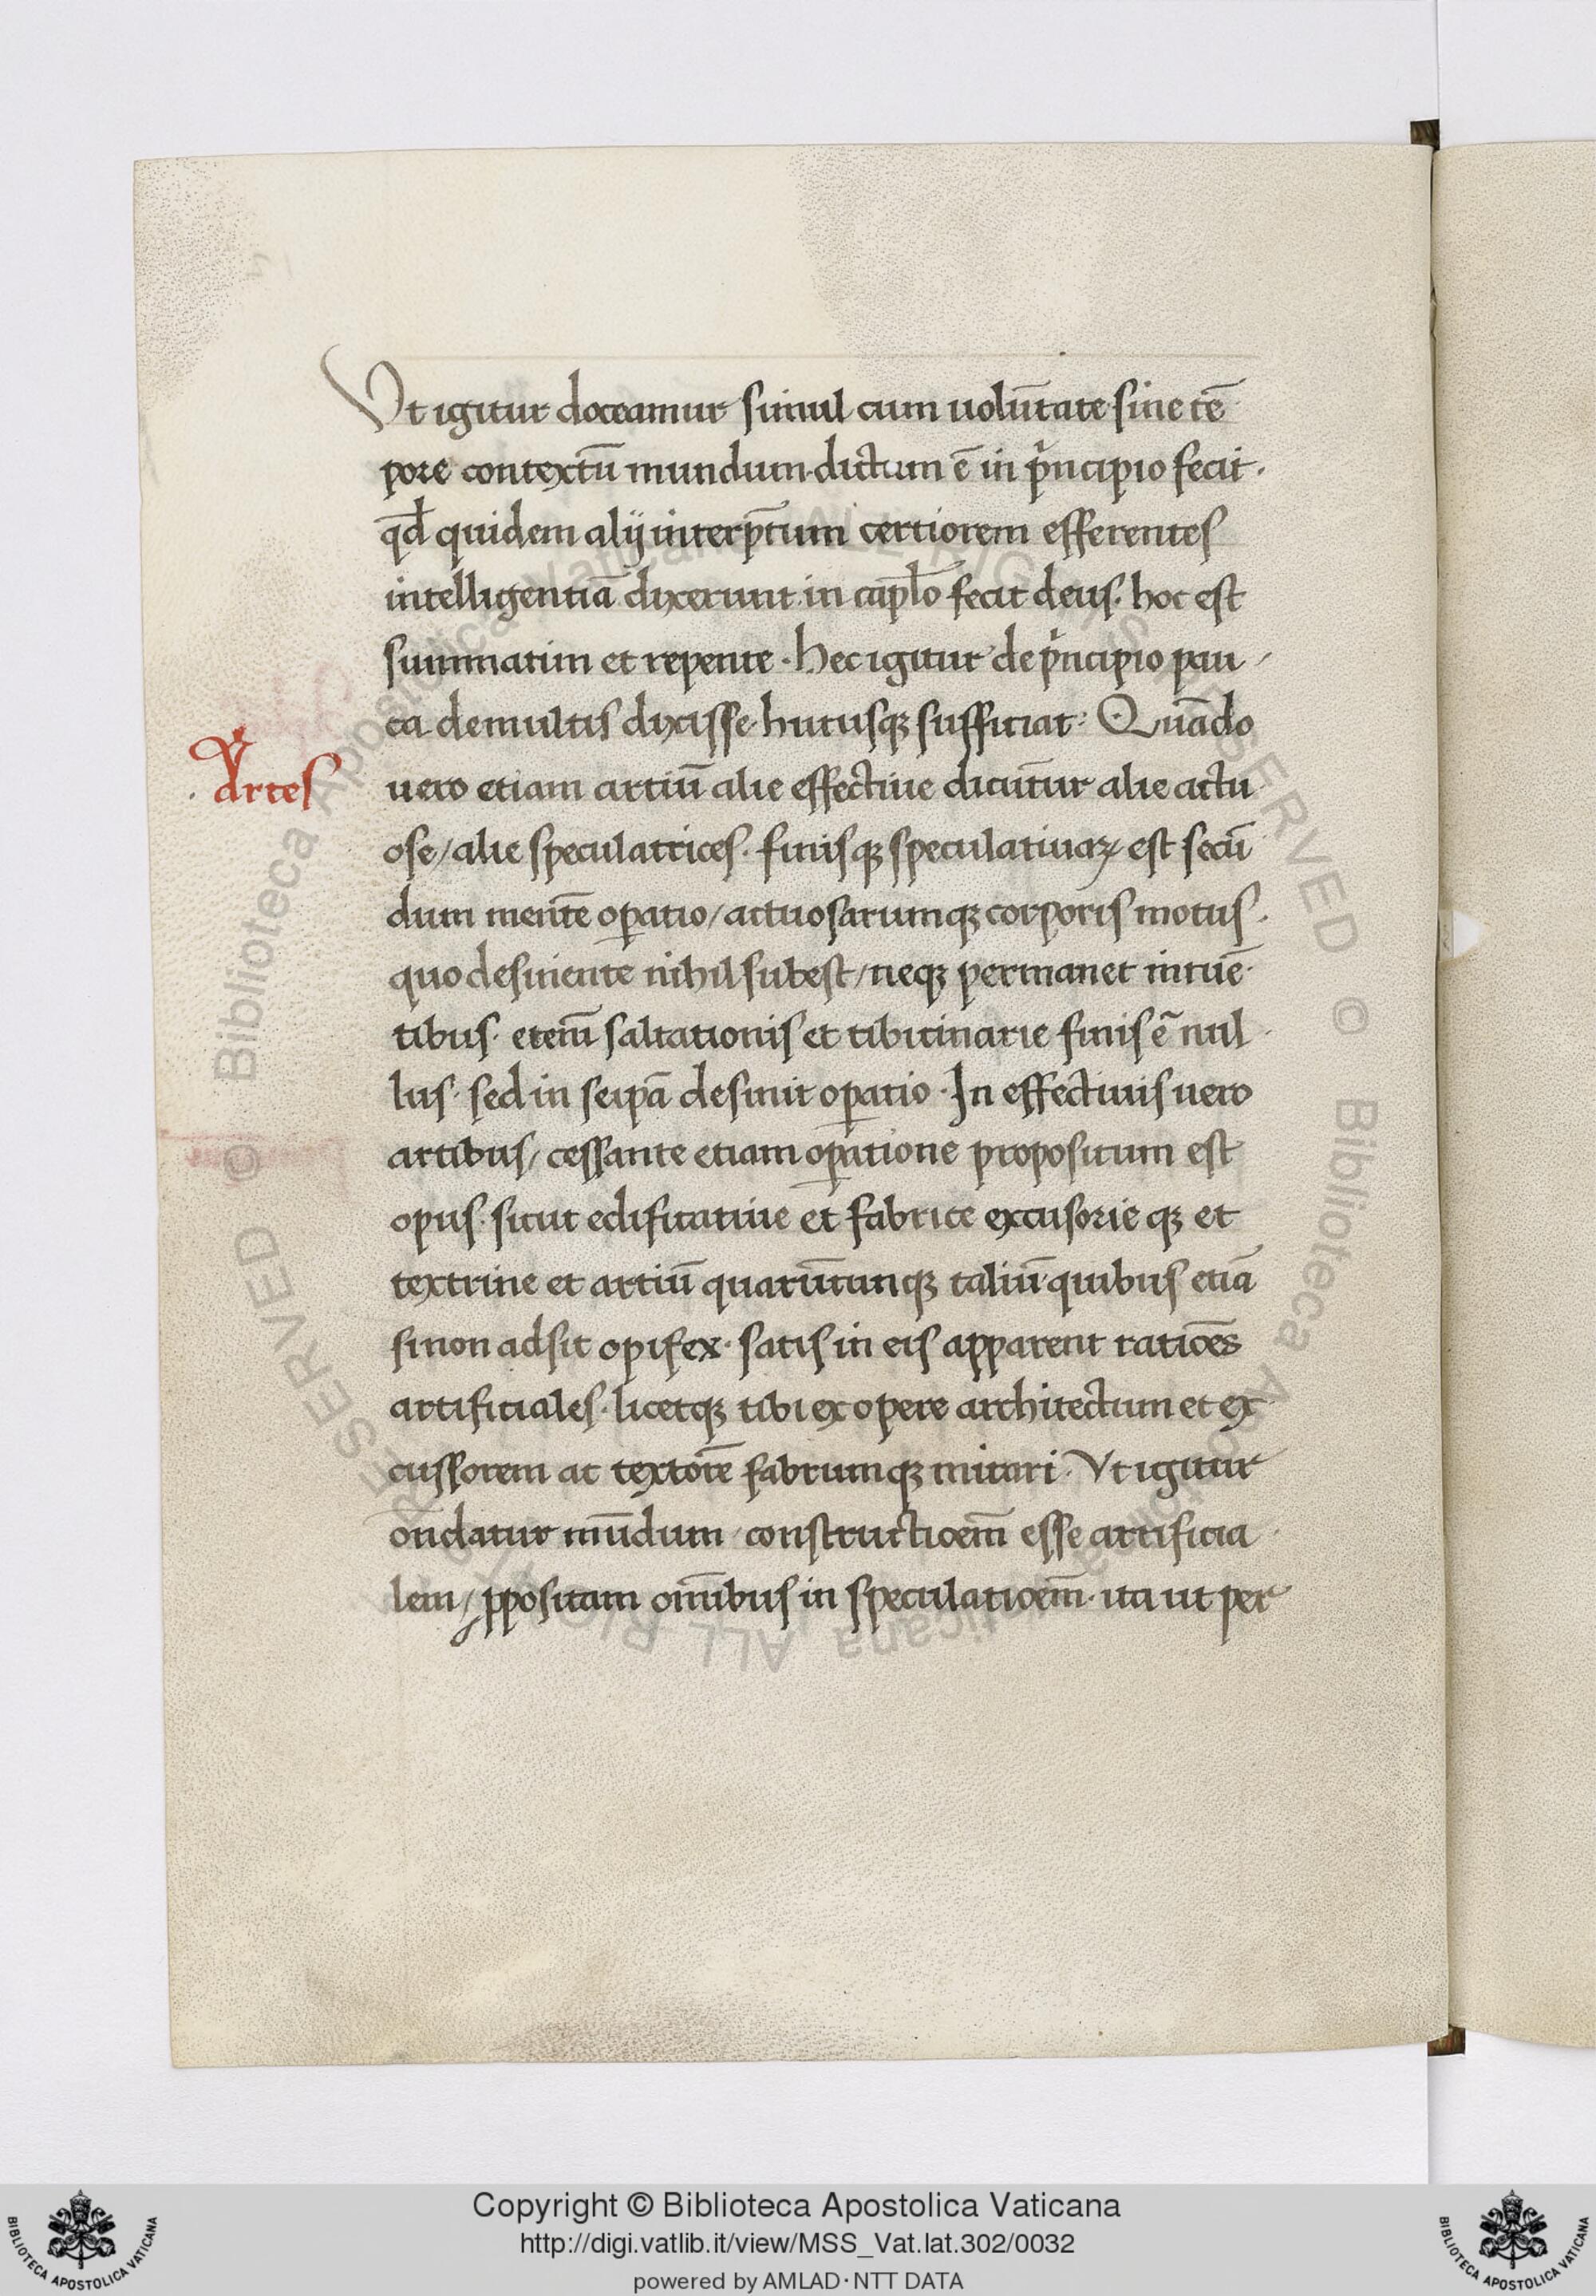 Vt igitur doceamur simul cum volūtate sine tē
pore contextū mundum dictum ē in p̍ncipio fecit.
qđ quidem alij interp̄tum certiorem efferentes
intelligentiā dixerunt in capl̄o fecit deus. hoc est
summatim et repente. Hec igitur de p̍ncipio pau/
ca de multis dixisse hucusqꝫ sufficiat: Quādo
Artes
uero etiam artiū alie effectiue dicūtur alie actu
ose/alie speculatrices. finisqꝫ speculatiuaꝝ est secū
dum mentē oꝑatio/actuosarumqꝫ corporis motus.
quo desinente nihil subest/neqꝫ permanet intuē
tibus. etenī saltationis et tibicinarie finis ē nul
lus. sed in seipā desinit oꝑatio. In effectiuis uero
artibus/cessante etiam oꝑatione propositum est
opus. sicut edificatiue et fabrice excusorieqꝫ et
textrine et artiū quarūcunqꝫ taliū quibus etiā
si non adsit opifex. satis in eis apparent ratiōes
artificiales. licetqꝫ tibi ex opere architectum et ex
cussorem ac textorē fabrumqꝫ mirari. Vt igitur
on̄datur mūdum constructioem̄ esse artificia
lem/ꝓpositam om̄ibus in speculatioem̄. ita ut per
Copyright © Biblioteca Apostolica Vaticana
http://digi.vatlib.it/view/MSS_Vat.lat.302/0032
powered by AMLAD·NTT DATA
BIBLIOTECA APOSTOLICA VATICANA
BIBLIOTECA APOSTOLICA VATICANA